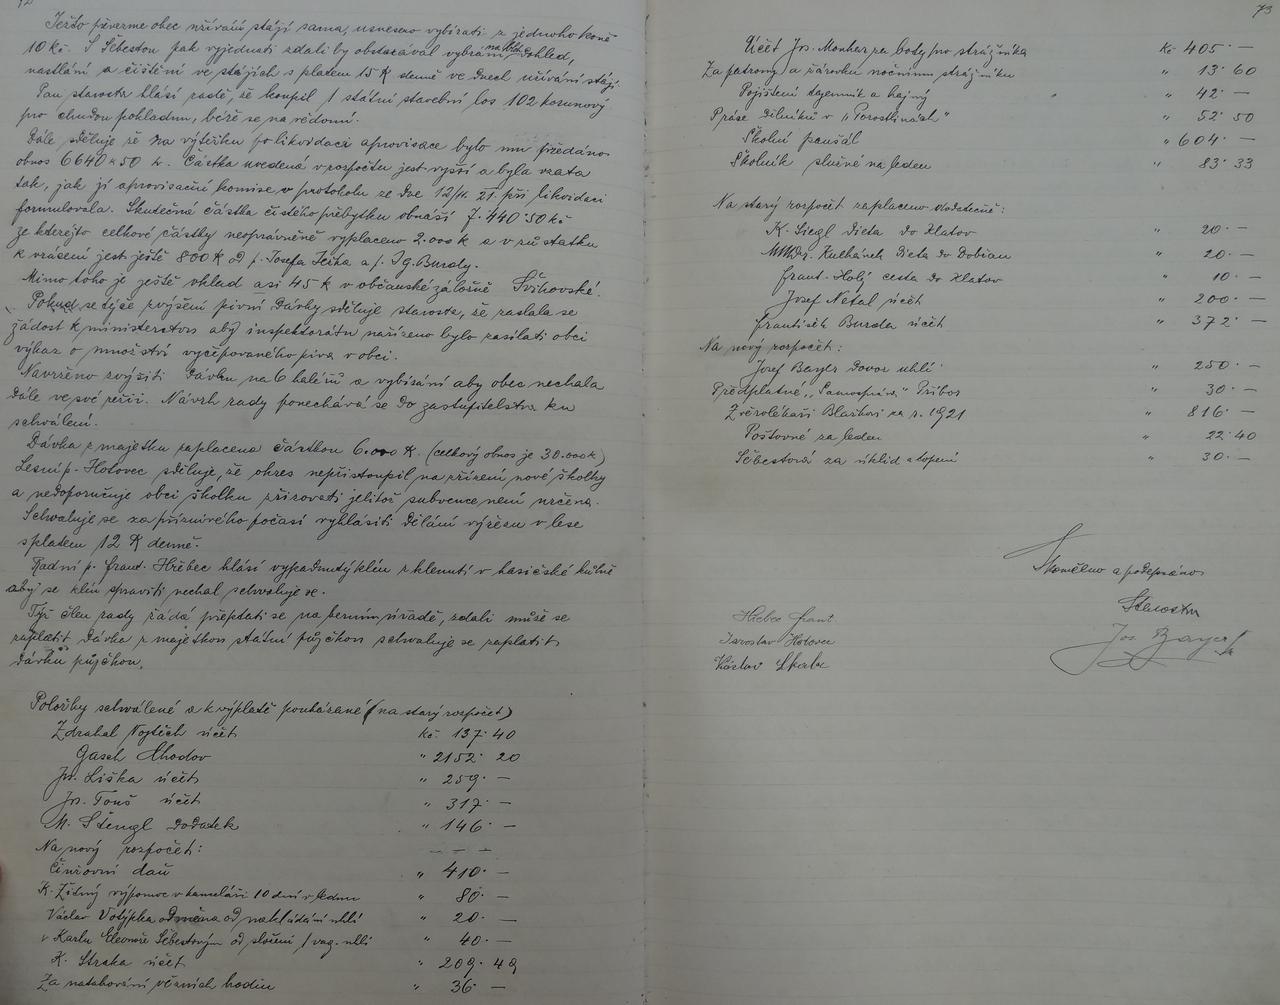 72
Ježto převezme obec užívání stájí sama, usneseno vybírati z jednoho koně
10 Kč. S Šebestou pak vyjednati zdali by obstarával vybrání na stáj dohled,
nastlání a čištění ve stájích s platem 15 K denně ve dnech užívání stájí.
Pan starosta hlásí radě, že koupil 1 státní stavební los 102 korunový
pro chudou pokladnu, béře se na vědomí.
Dále sděluje že na výtěžku po likvidaci aprovisace bylo mu předáno
obnos 6640 K 50 h. Částka uvedená v rozpočtu jest vyšší a byla vzata
tak, jak ji aprovisační komise v protokolu ze dne 12/11. 21. při likvidaci
formulovala. Skutečná částka čistého přebytku obnáší 7.440·50 Kč
ze kterejto celkové částky neoprávněně vyplaceno 2.000 K a v zůstatku
k vrácení jest ještě 800 K od p. Josefa Ježka a p. Ig. Burdy.
Mimo toho je ještě vklad asi 45 K v občanské záložně Švihovské.
Pokud se týče zvýšení pivní dávky sděluje starosta, že zaslala se
žádost k ministerstvu aby inspektorátu nařízeno bylo zasílati obci
výkaz o množství vyčepovaného piva v obci.
Navrženo zvýšiti dávku na 6 haléřů a vybírání aby obec nechala
dále ve své režii. Návrh rady ponechává se do zastupitelstva ku
schválení.
Dávka z majetku zaplacena částkou 6.000 K. (celkový obnos je 30.000 K)
Lesní p. Hotovec sděluje, že okres nepřistoupil na zřízení nové školky
a nedoporučuje obci školku zřizovati jelikož subvence není určena.
Schvaluje se za příznivého počasí vyhlásiti dělání výřezu v lese
s platem 12 K denně.
Radní p. Frant. Hřebec hlásí vypadnutý klín z klenutí v hasičské kůlně
aby se klín spraviti nechal schvaluje se.
Týž člen rady žádá přeptati se na berním úřadě, zdali může se
zaplatit dávka z majetkou státní půjčkou schvaluje se zaplatit
dávku půjčkou.
Položky schválené a k výplatě poukázané (na starý rozpočet)
Zdrahal Vojtěch účet Kč. 137·40
Gasch Chodov " 2152·20
Jos. Liška účet " 259·—
Jos. Touš účet " 317·—
M. Štengl dodatek " 146·—
Na nový rozpočet: — — —
Činžovní daň " 410·—
K. Židný výpomoc v kanceláři 10 dní v lednu " 80·—
Václav Votýpka odměna od nakládání uhlí " 20·—
Karlu Eleonoře Šebestovým od složení 1 vag. uhlí " 40·—
K. Straka účet " 209·49
Za natahování věžních hodin " 36·—
73
Účet Jos. Monhar za boty pro strážníka Kč 405·—
Za patrony a žárovku nočnímu strážníku " 13·60
Pojištění tajemník a hajný " 42·—
Práce dělníků v „Porostlinách" " 52·50
Školní paušál " 604·—
Školník služné na leden " 83·33
Na starý rozpočet zaplaceno dodatečně:
K. Siegl dieta do Klatov " 20·—
MUDr. Kulhánek dieta do Dobřan " 20·—
Frant. Holý cesta do Klatov " 10·—
Josef Netal účet " 200·—
František Burda účet " 372·—
Na nový rozpočet:
Josef Bayer dovoz uhlí " 250·—
Předplatné „Samospráva" Příbor " 30·—
Zvěrolékaři Blažkovi za r. 1921 " 816·—
Poštovné za leden " 22·40
Šebestová za úklid a topení " 30·—
Skončeno a podepsáno
Starosta
Jos. Bayer
Hřebec Frant
Jaroslav Hotovec
Václav Skala